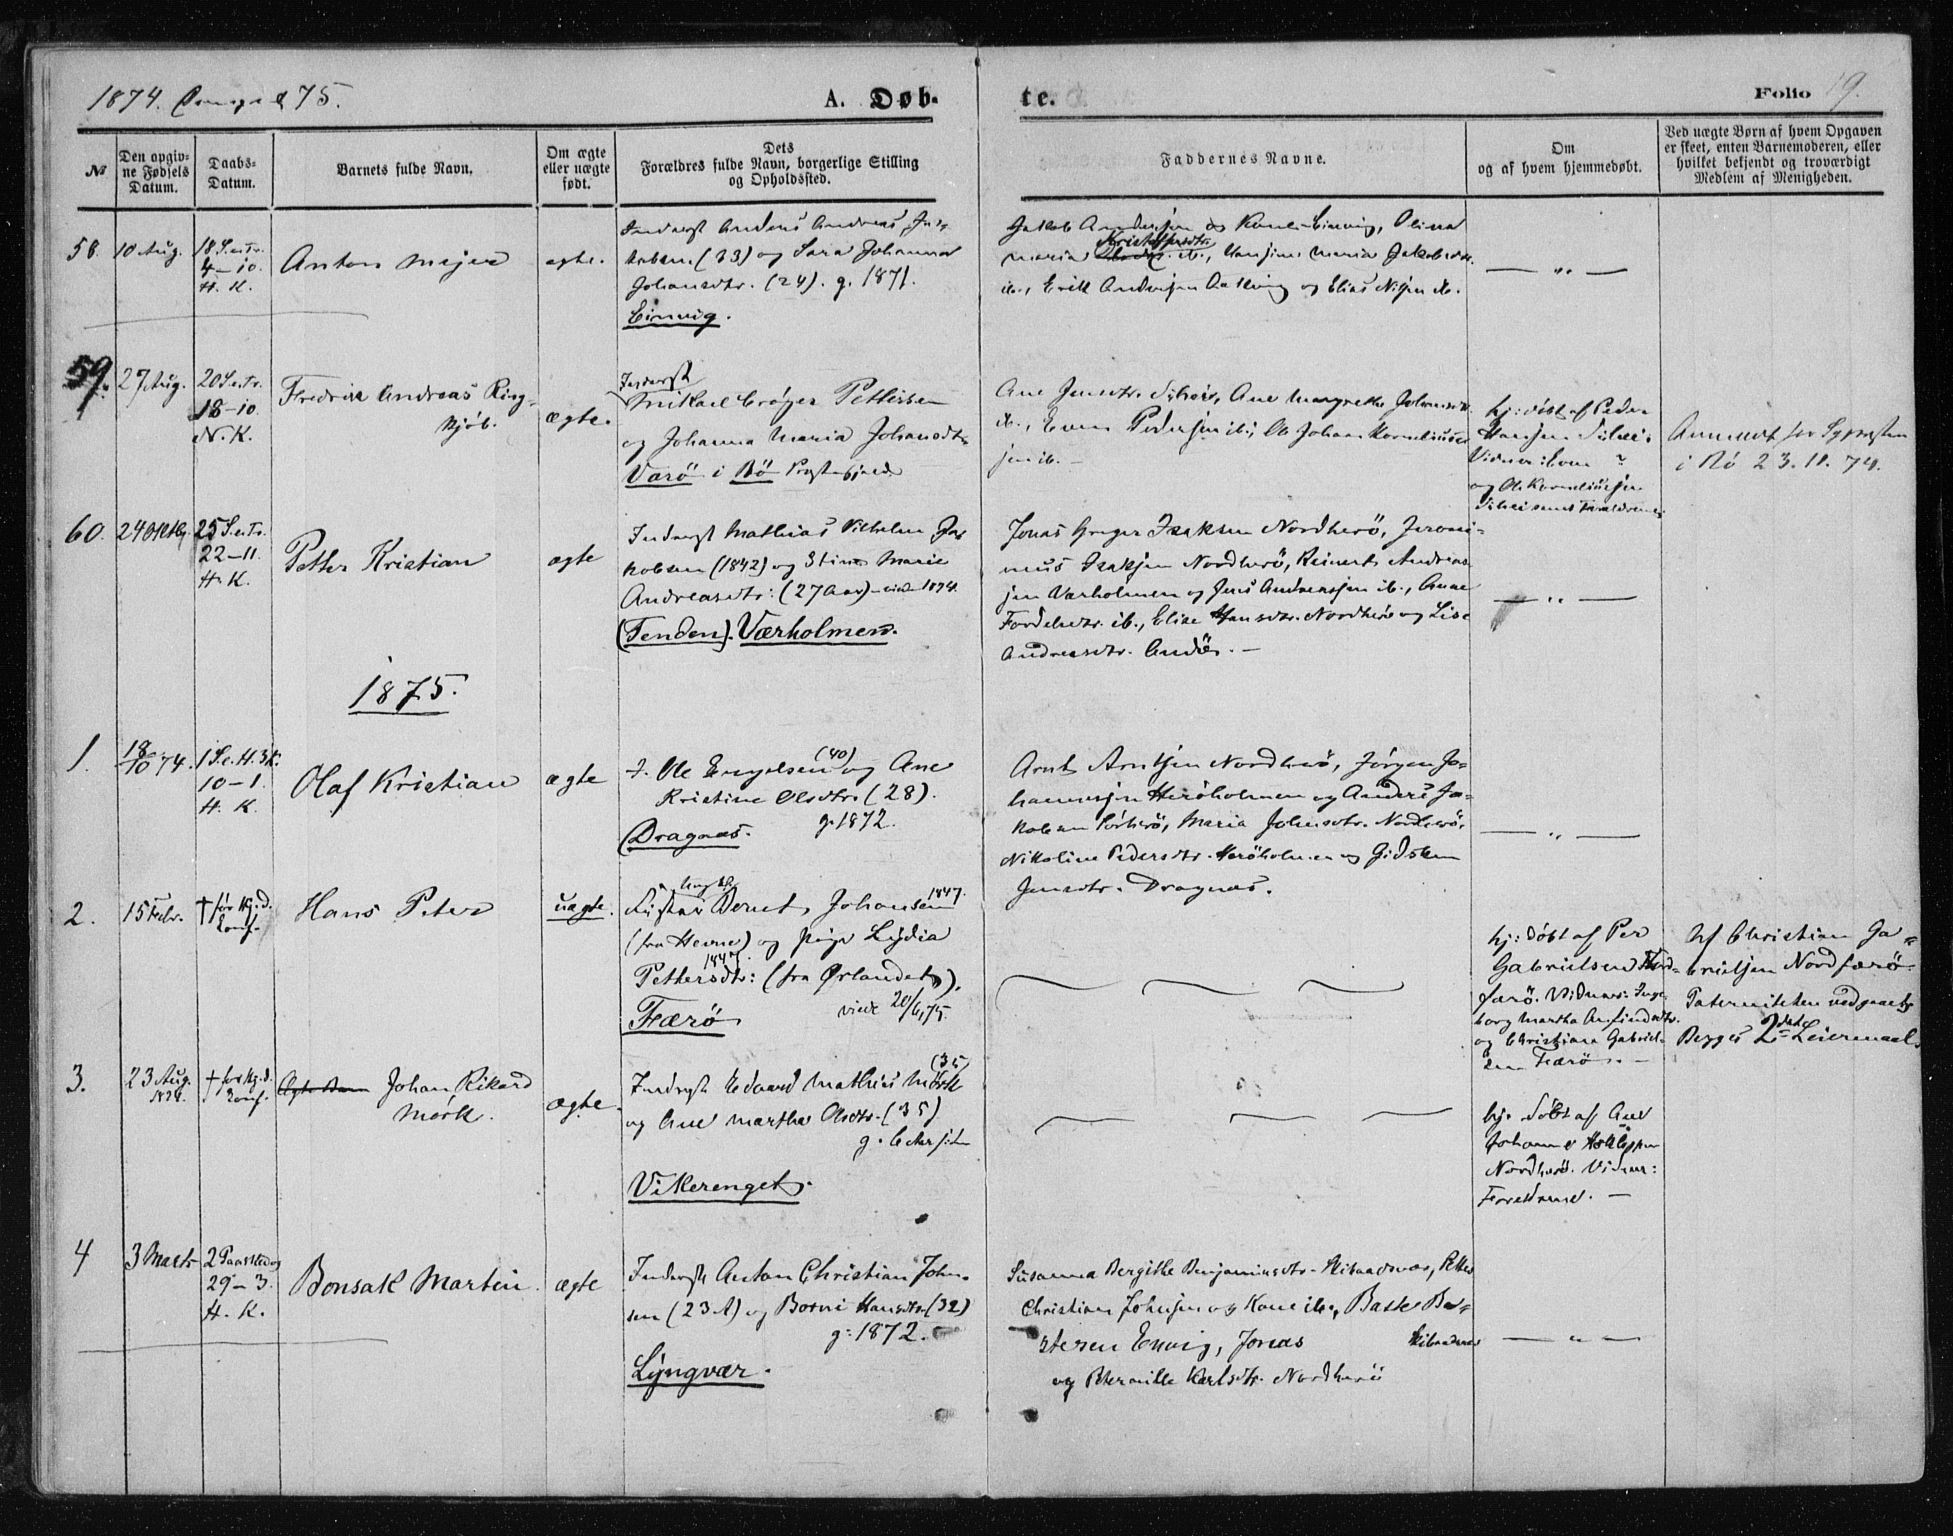 1874. 75.
A. Døb-
te.
Folio 19.
№
Den opgiv-
ne Fødsels
Datum.
Daabs-
Datum.
Barnets fulde Navn.
Om ægte
eller uægte
født.
Dets
Forældres fulde Navn, borgerlige Stilling
og Opholdssted.
Faddernes Navne.
Om
og af hvem hjemmedøbt.
Ved uægte Børn af hvem Opgaven
er skeet, enten Barnemoderen, eller
hvilket bekjendt og troværdigt
Medlem af Menigheden.
58. 10 Aug.
18 S.e.Tr.
4-10.
H. K.
Anton Mejer
ægte.
Inderst Anders Andreas Ja-
kobsen (33) og Sara Johanna
Johansdtr. (24). g. 1871.
Einvig.
Jakob Andersen og Kone Einvig, Olina
Maria Kristoffersdtr. ib., Hansine Maria Jakobsdtr.
ib., Erik Andersen Aakvig og Elias Nissen ib.
— " —
59. 27 Aug.
20 S.e.Tr.
18-10.
N. K.
Fredrik Andreas Ring-
kjöb.
ægte.
Inderst
Mikael Cröger Pettersen
og Johanna Maria Johansdtr.
Varö i Bö Præstegjeld
Ane Jensdtr. Ane Margrethe Johansdtr.
ib., Even Pedersen ib., Ole Johan Kornelius-
sen ib. —
hj: döbt af Peder
Hansen
Vidner: ?
og Ole Korneliussen
samt Forældrene
Anmeldt for Sognepresten
i Bö 23.11.74.
60. 24 Oktbr.
25 S.e.Tr.
22-11.
H. K.
Petter Kristian
ægte
Inderst Mathias Vilhelm Ja-
kobsen (1842) og Stine Marie
Andreasdtr: (27 Aar) - viede 1874.
(Tenden). Værholmen.
Jonas Greger Isaksen Nordherö, Jeroni-
mus Isaksen Nordherö, Reinert Andreas-
sen Værholmen og Jens Andreassen ib., Anne
Fordelsdtr. ib., Elise Hansdtr. Nordherö og Lise
Andreasdtr. Andös. —
— " —
1875.
1.
18/10 74.
1 S.e.H.3K.
10-1.
H. K.
Olaf Kristian
ægte
I. Ole Engelsen (40) og Ane
Kristine Olsdtr. (28).
g. 1872.
Dragnæs.
Arnt Arntsen Nordherö, Jörgen Jo-
hannesen Heröholmen og Anders Ja-
kobsen Sörherö, Maria Johnsdtr. Nordherö,
Nikoline Pedersdtr. Heröholmen og Gidsken
Jensdtr. Dragnæs.
— " —
2. 15 Febr.
† før Kj.d.
Conf.
Hans Peter
uægte.
Ungkl.
Fisker Bernt Johansen 1847.
(fra Hevne) og pige Lydia
Pettersdtr: 1847. (fra Ørlandet).
Færö viede 20/6 75.
hj: döbt af Per
Gabrielsen Nord-
færö. Vidner: Inge-
borg Martha Arfindsdtr.
og Christian Gabriel-
sen Færö. —
Af Christian Ga-
brielsen Nordfærö.
Paterniteten vedgaaet
Begges 2det Leiermaal.
3. 23 Aug.
1874.
† før Kj.d.
Conf.
Johan Rikard
Mörk.
ægte.
Inderst Edvard Mathias Mörk (35)
og Ane Martha Olsdtr. (35)
g. 6 Aar siden
Vikerenget.
hj. döbt af Ane
Johanne
Nordherö. Vidner:
Foreldrene. —
4 3 Marts
2 Paaskedag
29-3.
H. K.
Bonsak Martin
ægte
Inderst Anton Christian John-
sen (23 A) og Borni Hansdtr. (32)
g: 1872.
Lyngvær.
Susanna Bergithe Benjaminsdtr. Skibaadsvær, Petter
Christian Johnsen og Kone ib., Baste Ba-
stesen Envig, Jonas Skibaadsvær
og Pernille Karlsdtr. Nordherö
— " —